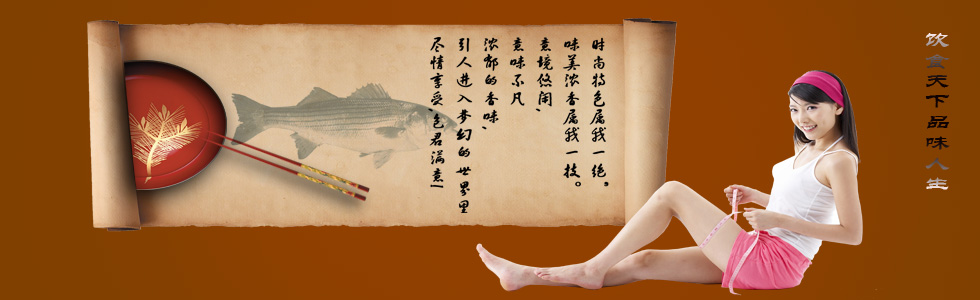 饮食天下品味人生
时尚特色属我一绝。
味美浓香属我一技。
意境悠闲、
意味不凡
浓郁的香味、
引人进入梦幻的世界里
尽情享受,包君满意!